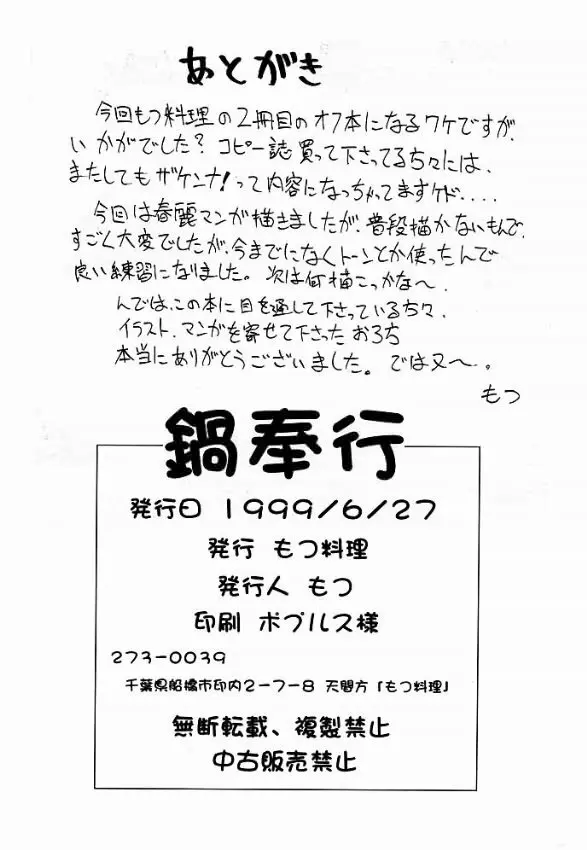 あとがき
今回もつ料理の2冊目のオフ本になるワケですが、
いかがでした？コピー誌買って下さってる方々には、
またしてもザケンナ！って内容になっちゃってますケド....
今回は春麗マンガ描きましたが、普段描かないもんで、
すごく大変でしたが、今までになくトーンとか使ったんで
良い練習になりました。次は何描こっかな～、
んでは、この本に目を通して下さっている方々、
イラスト、マンガを寄せて下さった おろち
本当にありがとうございました。では又～。
もつ
鍋奉行
発行日 1999/6/27
発行 もつ料理
発行人 もつ
印刷 ポプルス様
273-0039
千葉県船橋市印内2-7-8 天間方「もつ料理」
無断転載、複製禁止
中古販売禁止